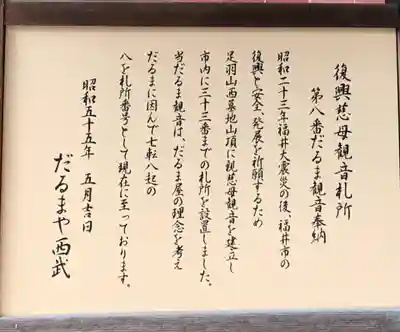 復興慈母観音札所
第八番だるま観音奉納
昭和二十三年福井大震災の後、福井市の
復興と安全、発展を祈願するため
足羽山西墓地山頂に親慈母観音を建立し
市内に三十三番までの札所を設置しました。
当だるま観音は、だるま屋の理念を考え
だるまに因んで七転八起の
八を札所番号として現在に至っております。
昭和五十五年　五月吉日
だるまや西武